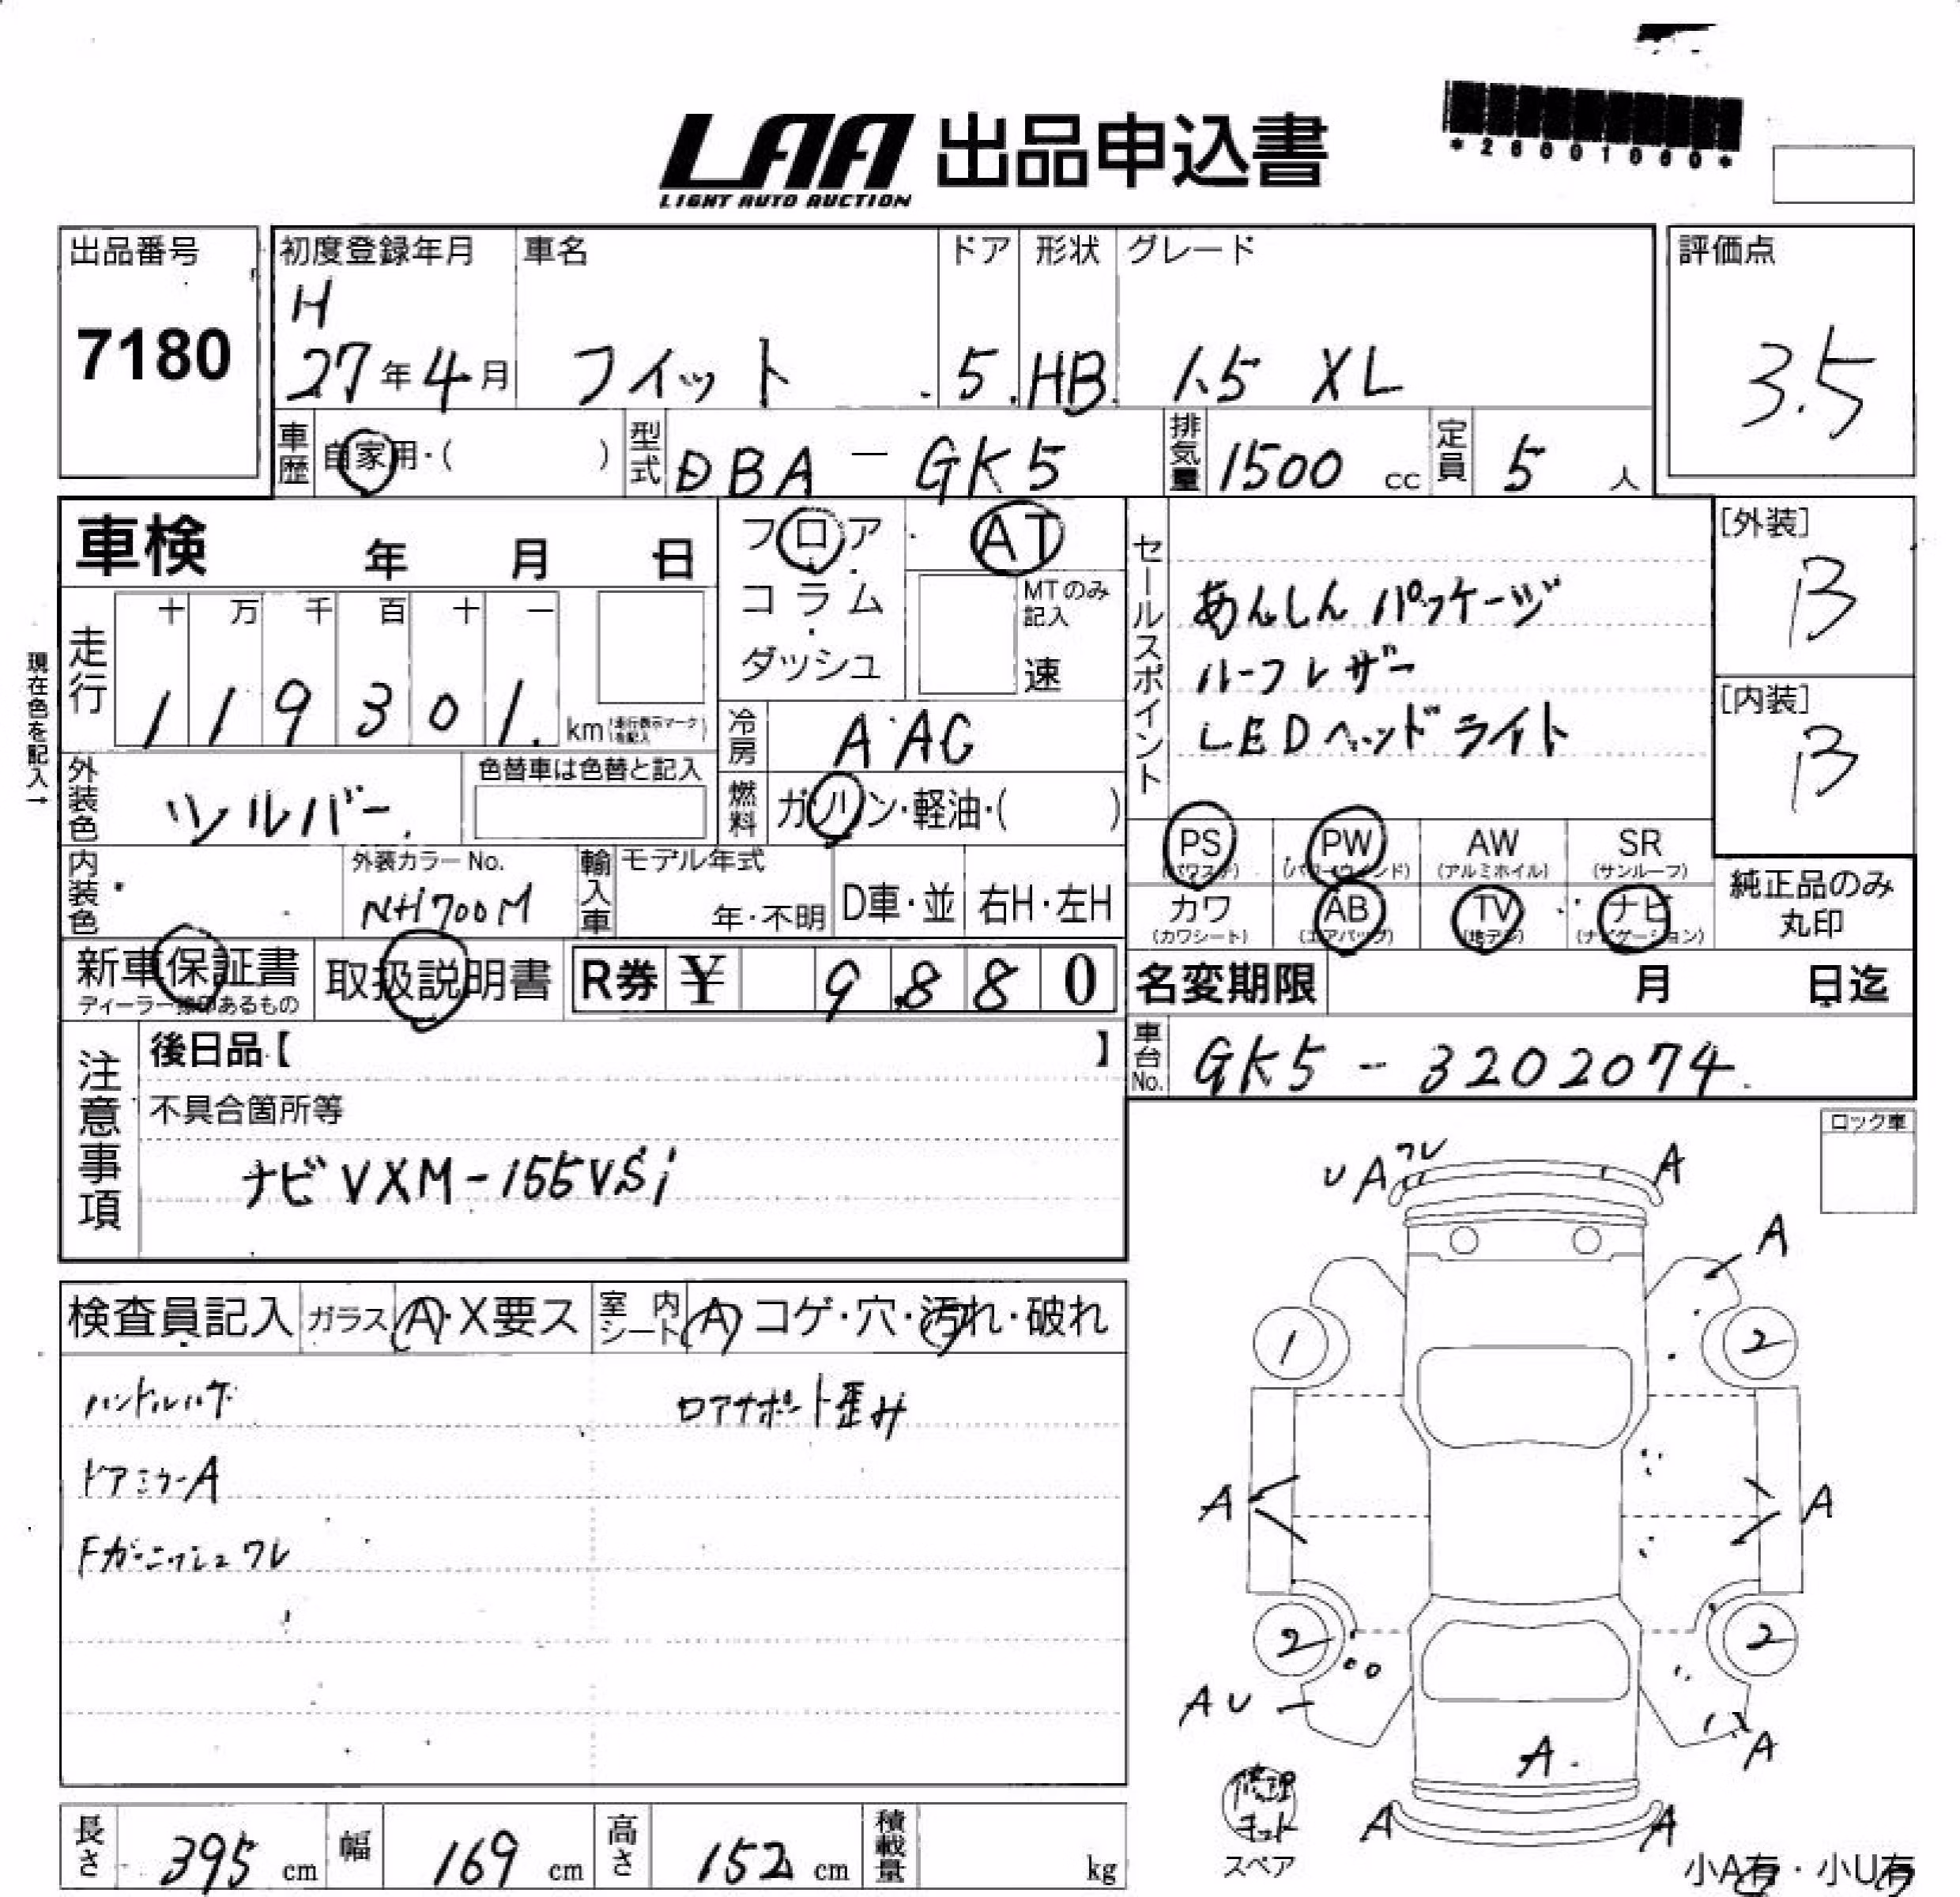 LAA 出品申込書
LIGHT AUTO AUCTION
*26001060*
出品番号
7180
初度登録年月
H
27年4月
車名
フィット
ドア
5
形状
HB
グレード
1.5 XL
評価点
3.5
車歴
自家用・( )
型式
DBA-GK5
排気量
1500 cc
定員
5 人
車検 年 月 日
フロア・コラム・ダッシュ
AT
MTのみ記入
速
セールスポイント
あんしんパッケージ
ハーフレザー
LEDヘッドライト
[外装]
B
[内装]
B
現在色を記入→
走行
十 万 千 百 十 一
1 1 9 3 0 1
km(走行表示マークを記入)
冷房
AAC
外装色
シルバー
色替車は色替と記入
燃料
ガソリン・軽油・( )
PS
(パワステ)
PW
(パワーウインド)
AW
(アルミホイル)
SR
(サンルーフ)
内装色
外装カラーNo.
NH700M
輸入車
モデル年式
年・不明
D車・並
右H・左H
カワ
(カワシート)
AB
(エアバッグ)
TV
(地デジ)
ナビ
(ナビゲーション)
純正品のみ
丸印
新車保証書
ディーラー捺印あるもの
取扱説明書
R券 ¥ 9,880
名変期限 月 日迄
注意事項
後日品【 】
車台No.
GK5-3202074
不具合箇所等
ナビVXM-155VSi
ロック車
検査員記入
ガラス A・X要ス
室内シート A コゲ・穴・汚れ・破れ
ハンドルハゲ
ロアサポート歪み
ドアミラーA
Fガーニッシュワレ
U A ワレ
A
A
1
2
A
A
2
2
AU
A
A
修理キット
スペア
A
A
小A有・小U有
長さ
395 cm
幅
169 cm
高さ
152 cm
積載量
kg